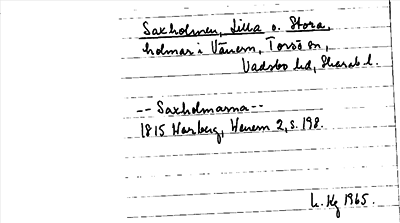 Saxholmen, Lilla o. Stora,
holmar i Vänern, Torsö sn,
Vadsbo hd, Skarab. l.
-- Saxholmarna --
1815 Warberg, Wenern 2, s. 198.
L. Kg 1965.